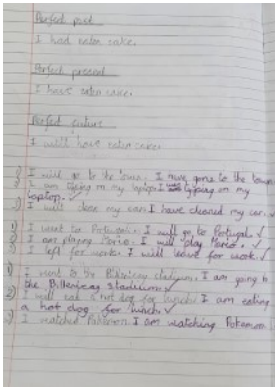 Perfect past
I had eaten cake.
Perfect present
I have eaten cake.
Perfect future
I will have eaten cake.
1) I will go to the town. I have gone to the town
2) I am typing on my laptop. I was typing on my
laptop. ✓
3) I will clean my car. I have cleaned my car. ✓
1) I went to Portugal. I will go to Portugal. ✓
2) I am playing Mario. I will play Mario. ✓
3) I left for work. I will leave for work. ✓
1) I went to the stadium. I am going to
the stadium. ✓
2) I will eat a hot dog for lunch. I am eating
a hot dog for lunch. ✓
3) I watched Pokemon. I am watching Pokemon.